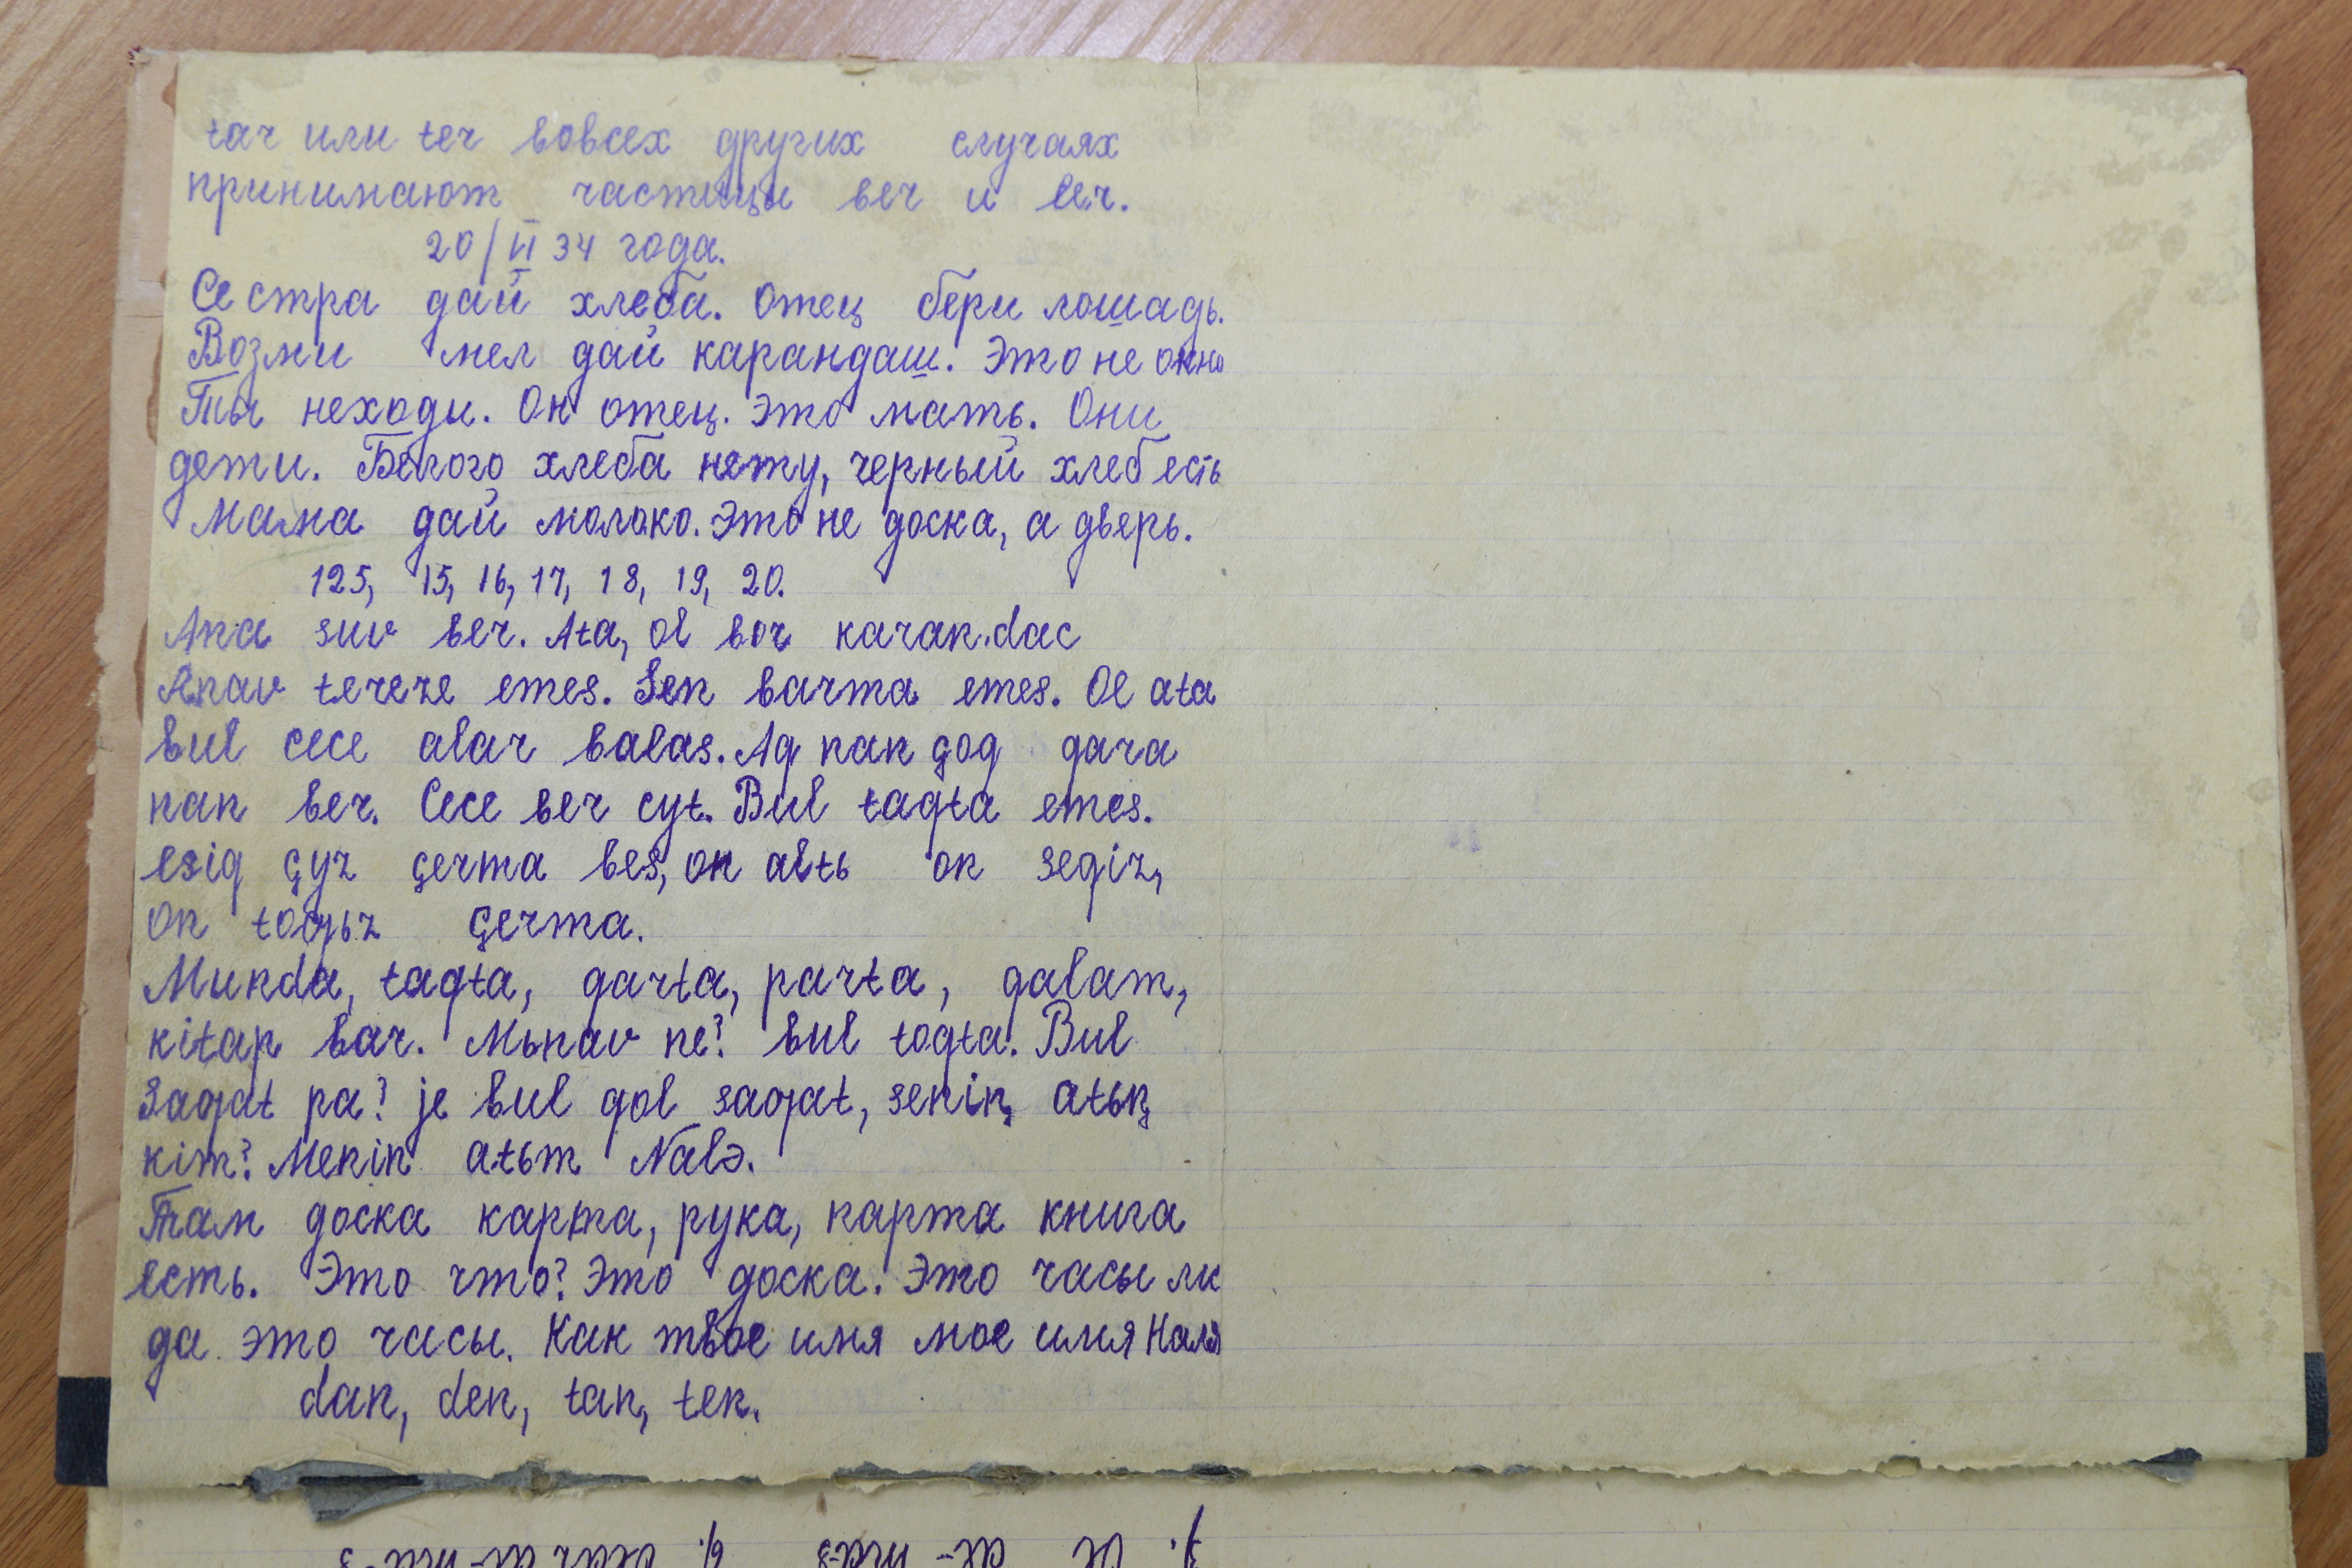 tar или ter вовсех других случаях
принимают частицы ler и ler.
20/II 34 года.
Сестра дай хлеба. Отец бери лошадь.
Возми мел дай карандаш. Это не окно
Ты неходи. Он отец. Это мать. Они
дети. Белого хлеба нету, черный хлеб есть
Мама дай молоко. Это не доска, а дверь.
125, 15, 16, 17, 18, 19, 20.
Ana suv ber. Ata, ol bor karan.dac
Anav tereze emes. Sen barma emes. Ol ata
bul cece alar balas. Aq nan çoq qara
nan ber. Cece ber cyt. Bul taqta emes.
esiq çyz çerma bes, on altь on segiz,
on toƣьz çerma.
Munda, taqta, qarta, parta, qalam,
kitap bar. Mьnav ne? bul toqta. Bul
saƣat pa? je bul qol saƣat, seniꞑ atьꞑ
kim? Menin atьm Nalə.
Там доска карта, рука, парта книга
есть. Это что? Это доска. Это часы ли
да это часы. Как твое имя мое имя Наля
dan, den, tan, ten.